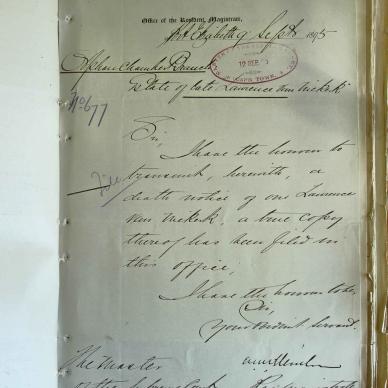 Office of the Resident Magistrate,
Port Elizabeth 9 Sept 1895
Orphan Chamber Branch
Estate of late Lawrence van Niekerk
No 677
12 SEP
CAPE TOWN
Sir,
I have the honour to
transmit, herewith, a
death notice of one Lawrence
van Niekerk, a true copy
thereof has been filed in
this office,
I have the honour to be,
Sir,
Your obedient Servant
The Master
of the Supreme Court